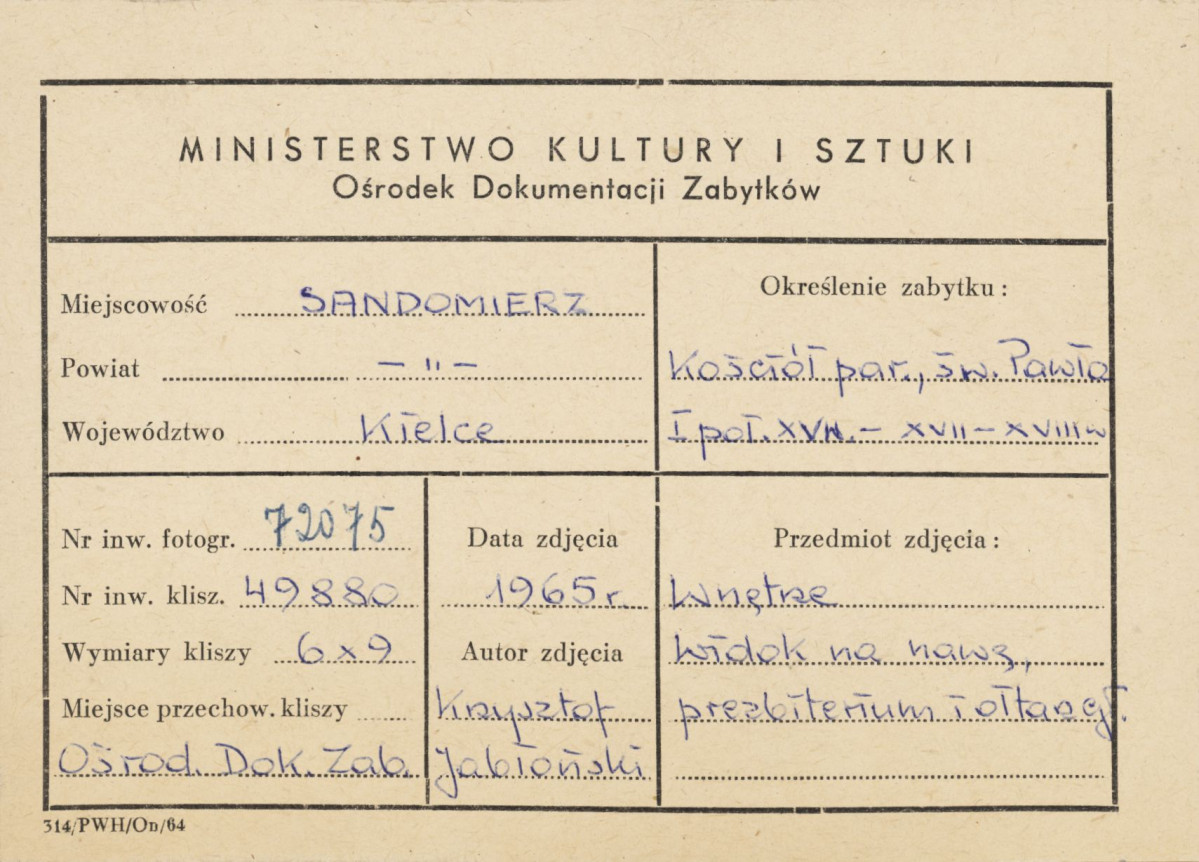 MINISTERSTWO KULTURY I SZTUKI
Ośrodek Dokumentacji Zabytków
Miejscowość SANDOMIERZ
Powiat — " —
Województwo Kielce
Określenie zabytku:
Kościół par., św. Pawła
I poł. XVw. – XVII – XVIII w
Nr inw. fotogr. 72075
Nr inw. klisz. 49880
Wymiary kliszy 6x9
Miejsce przechow. kliszy
Ośrod. Dok. Zab.
Data zdjęcia
1965 r.
Autor zdjęcia
Krzysztof
Jabłoński
Przedmiot zdjęcia:
Wnętrze
widok na nawę,
prezbiterium i ołtarz gł.
314/PWH/On/64